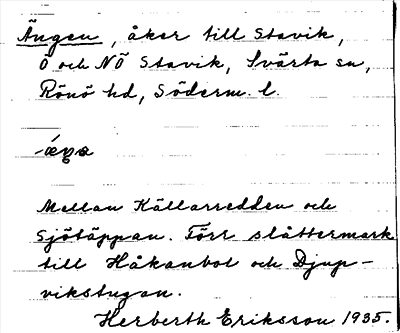 Ängen, åker till Stavik,
Ö och NÖ Stavik, Svärta sn,
Rönö hd, Söderm. l.
Mellan Källarredden och
Sjötäppan. Förr slåttermark
till Håkanbol och Djup-
vikstugan.
Herberth Eriksson 1935.